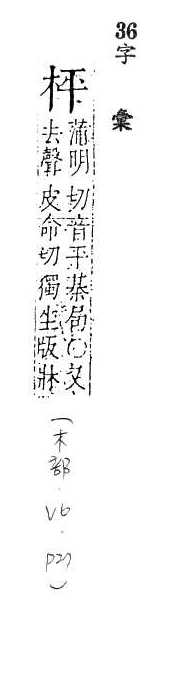 36字 彙
枰
蒲明切音平棊局〇又
去聲皮命切獨坐版牀
(木部.V6.P27)